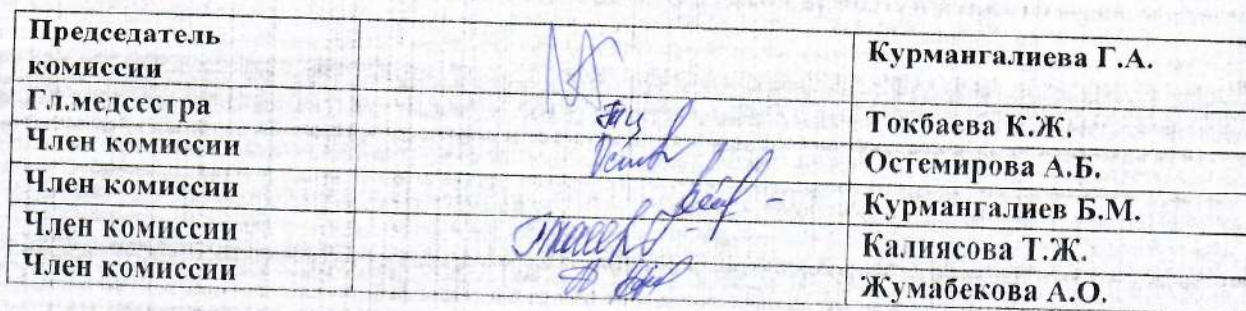 Председатель
комиссии Курмангалиева Г.А.
Гл.медсестра Токбаева К.Ж.
Член комиссии Остемирова А.Б.
Член комиссии Курмангалиев Б.М.
Член комиссии Калиясова Т.Ж.
Член комиссии Жумабекова А.О.